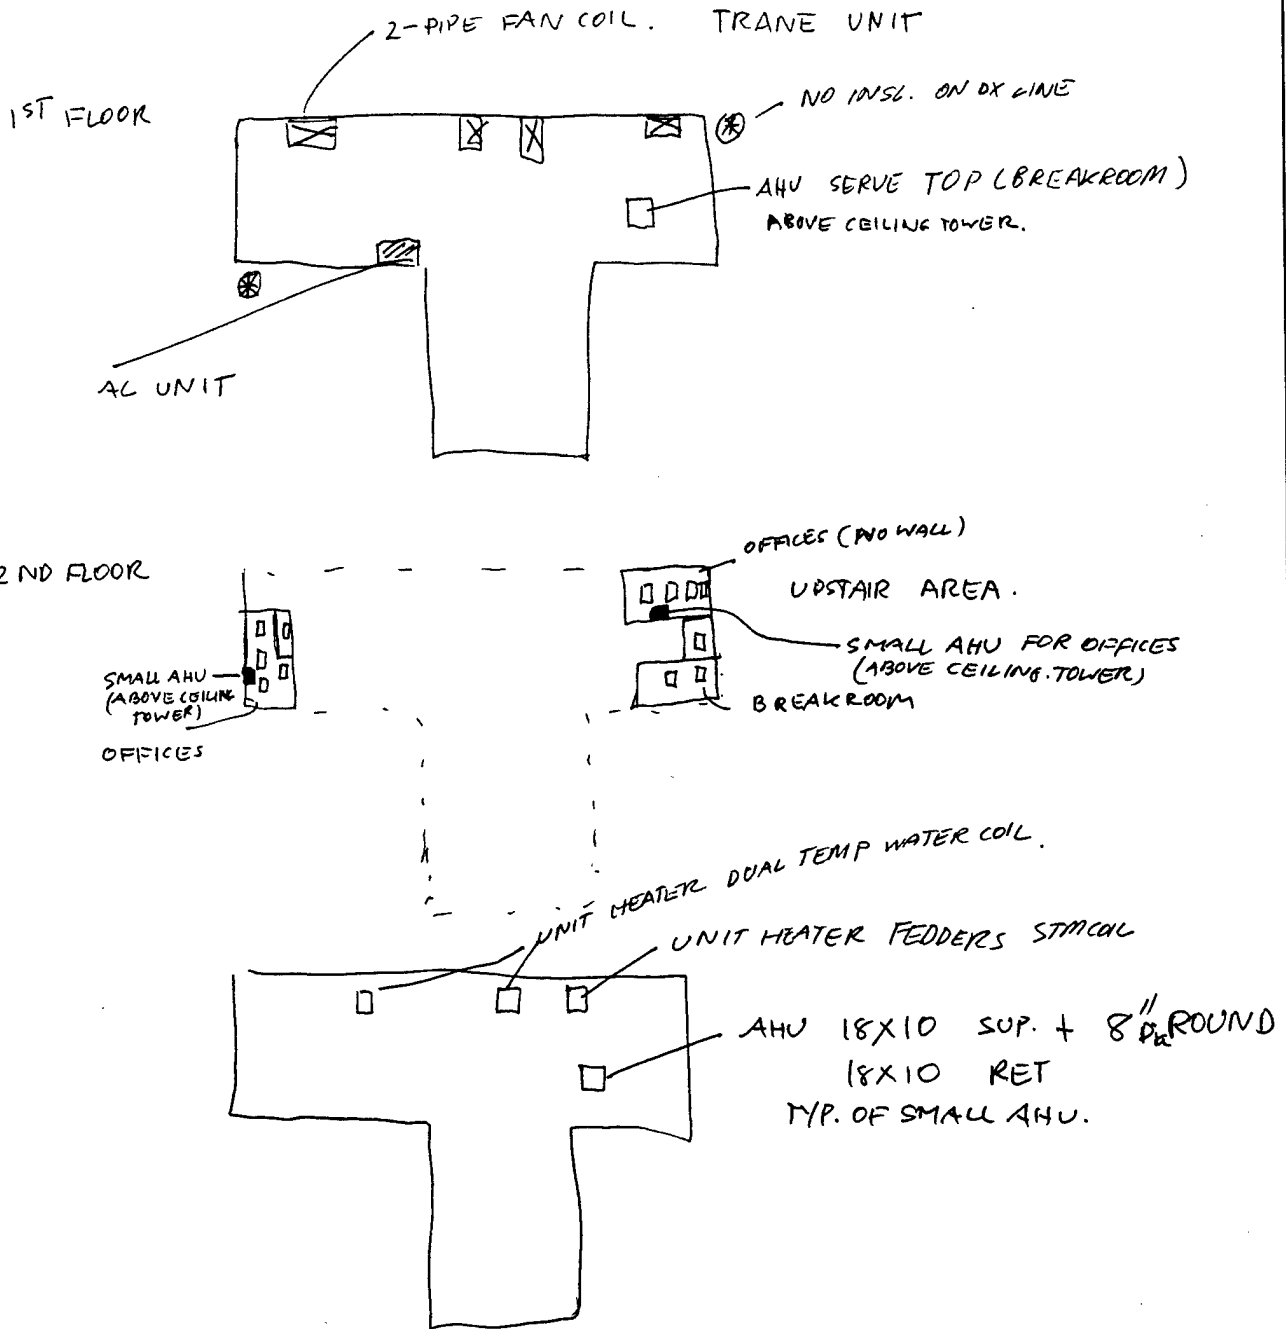 2-PIPE FAN COIL. TRANE UNIT
1ST FLOOR
NO INSL. ON DX LINE
AHU SERVE TOP (BREAKROOM)
ABOVE CEILING TOWER.
AC UNIT
2ND FLOOR
OFFICES (NO WALL)
UPSTAIR AREA.
SMALL AHU FOR OFFICES
(ABOVE CEILING.TOWER)
BREAKROOM
SMALL AHU
(ABOVE CEILING
TOWER)
OFFICES
UNIT HEATER DUAL TEMP WATER COIL.
UNIT HEATER FEDDERS STMCOIL
AHU 18X10 SUP. + 8" ROUND
18X10 RET
TYP. OF SMALL AHU.